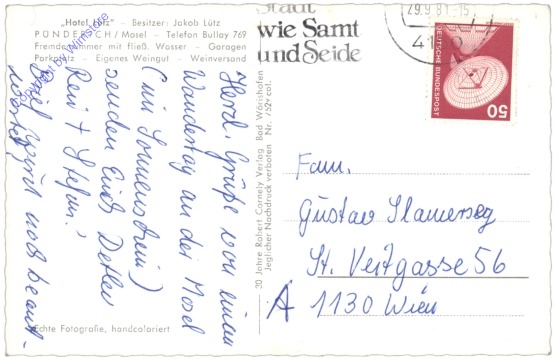 „Hotel Lütz" – Besitzer: Jakob Lütz
PÜNDERICH/Mosel – Telefon Bullay 769
Fremdenzimmer mit fließ. Wasser – Garagen
Parkplatz – Eigenes Weingut – Weinversand
Herzl. Grüße von einem
Wandertag an der Mosel
(im Sonnenschein)
senden Euch Detlev
Rein + Stefan.
Brief wird noch beant-
wortet
Echte Fotografie, handcoloriert
30 Jahre Robert Cornely Verlag Bad Wörishofen
Jeglicher Nachdruck verboten Nr. 752v col.
Stadt
wie Samt
und Seide
29.9.81-15
DEUTSCHE BUNDESPOST
50
Fam.
Gustav Slamerseg
St. Veitgasse 56
A 1130 Wien